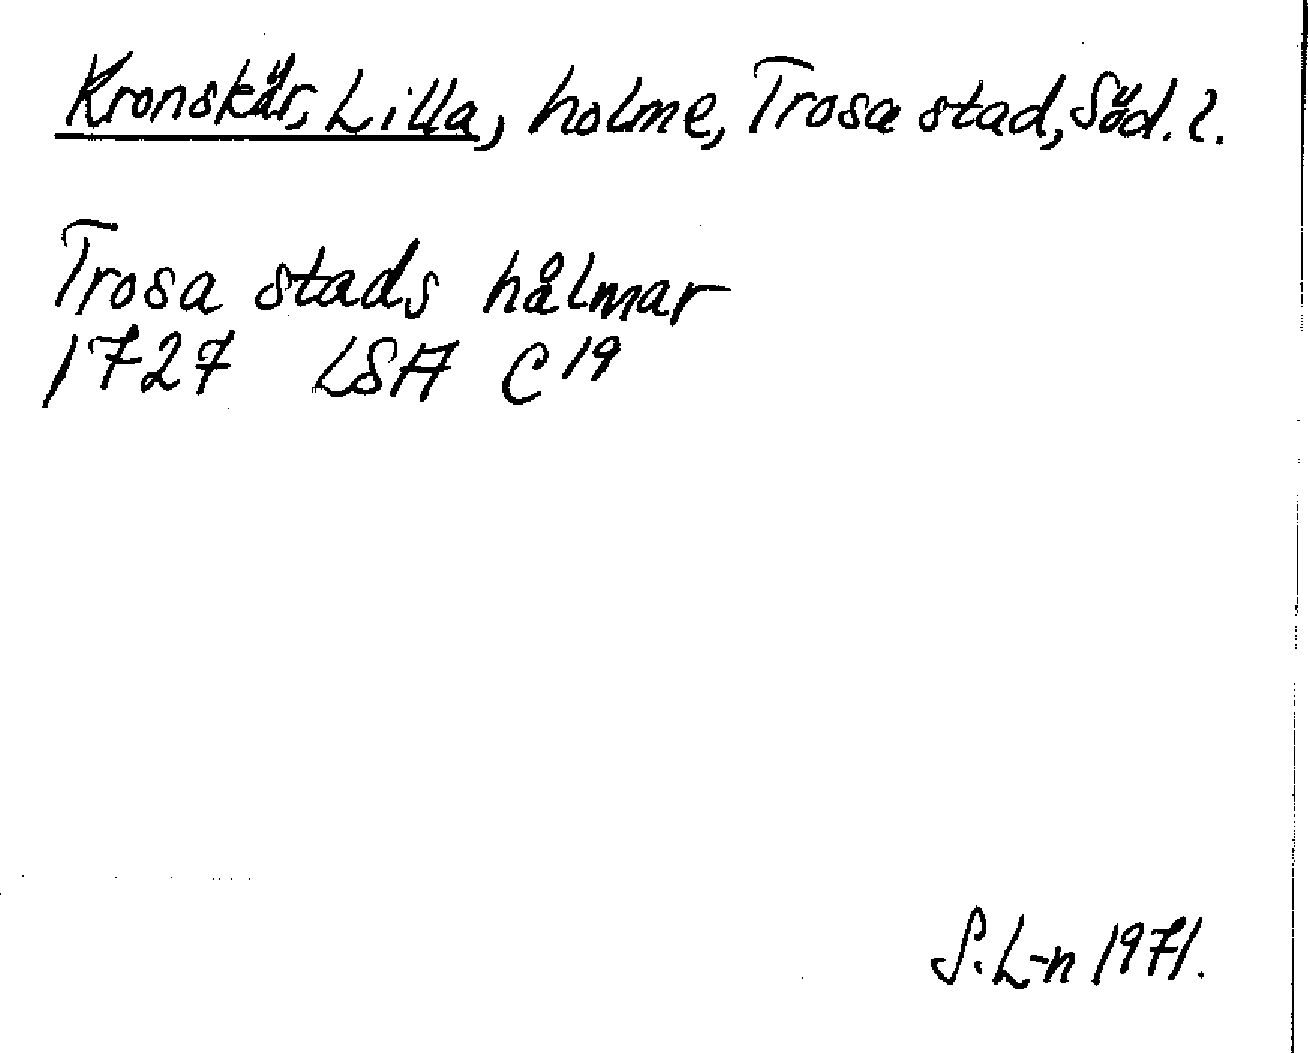 Kronskär, Lilla, holme, Trosa stad, Söd. l.
Trosa stads hålmar
1727 LSA C19
S. L-n 1971.